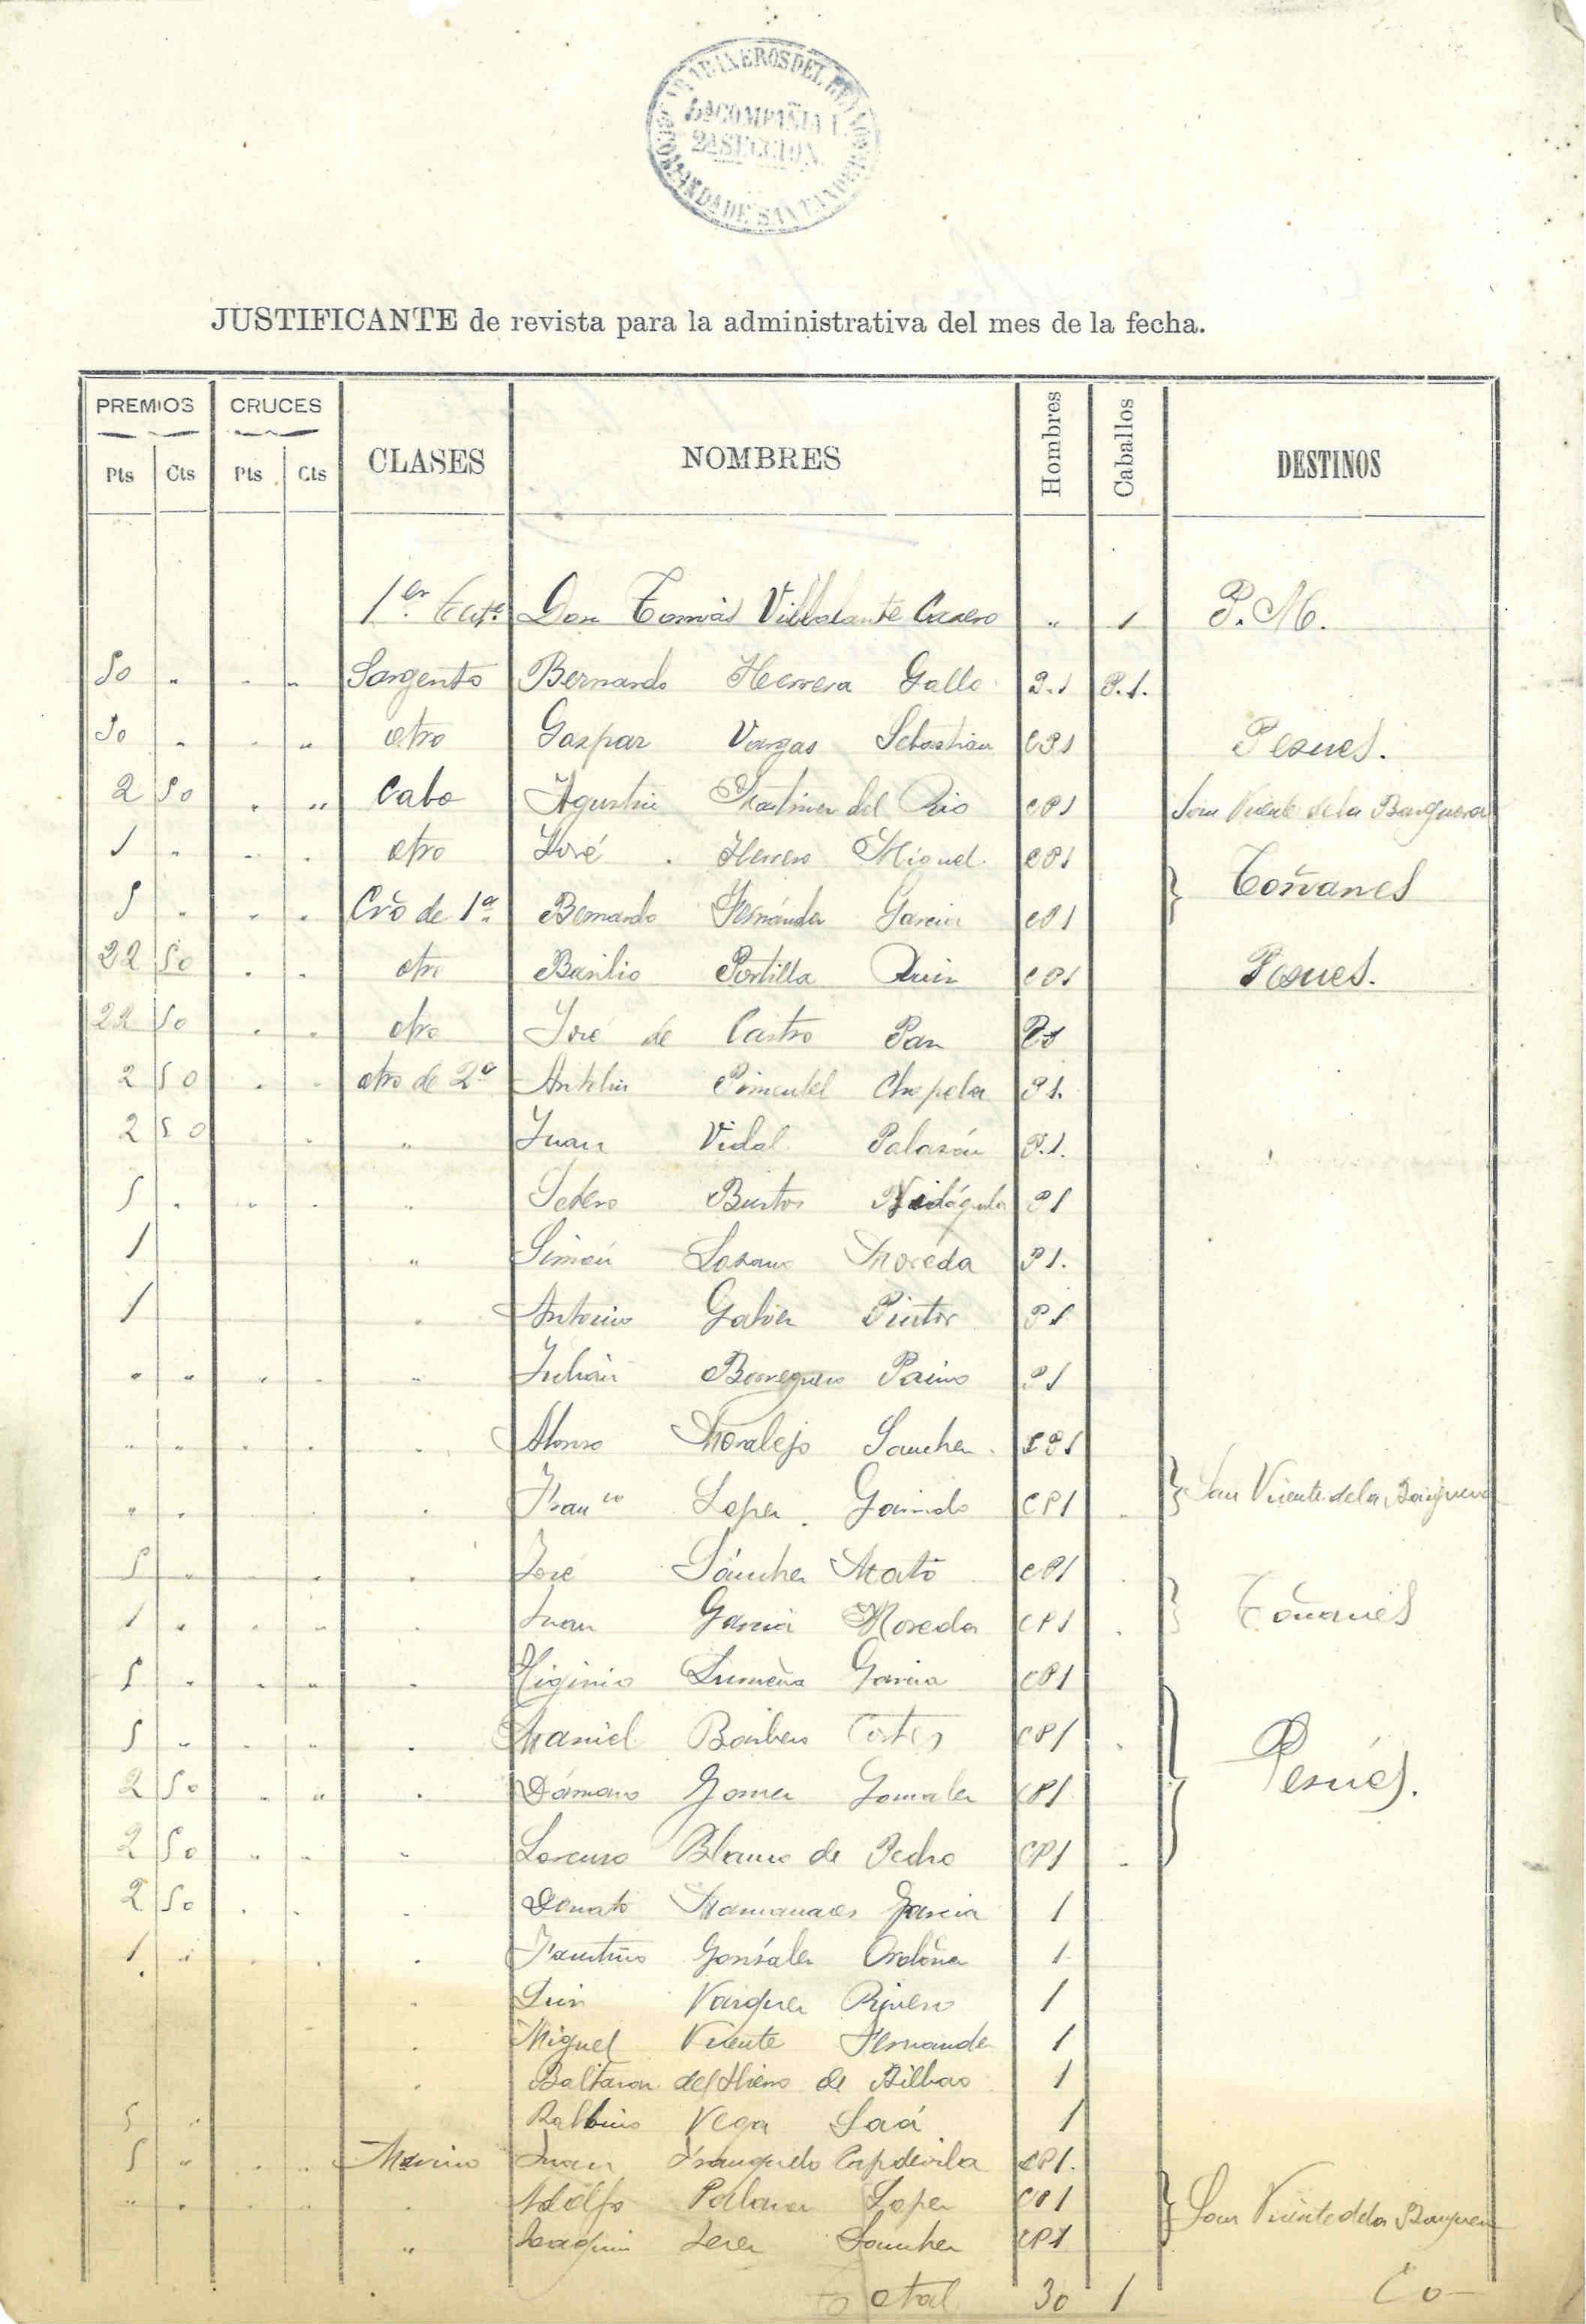 CARABINEROS DEL REINO
5ª COMPAÑIA
2ª SECCION.
COMANDª DE SANTANDER
JUSTIFICANTE de revista para la administrativa del mes de la fecha.
PREMIOS CRUCES CLASES NOMBRES Hombres Caballos DESTINOS
Pts Cts Pts Cts
1er Tnte. Don Tomás Villalante Casero " 1 P.M.
50 " " " Sargento Bernardo Herrera Gallo P.1 P.1.
30 " " " otro Gaspar Vargas Sebastian CP1 Pesues.
2 50 " " Cabo Agustin Martinez del Rio CP1 San Vicente de la Barquera
1 " " " otro José Herrero Miguel CP1
} Toñanes
5 " " " Cro de 1ª Bernardo Fernández Garcia CP1
22 50 " " otro Basilio Portilla Ruiz CP1 Pesues.
22 50 " " otro José de Castro Pan P1
2 50 " " otro de 2ª Antolin Pimentel Chapela P1.
2 50 " " Juan Vidal Palazón P.1.
5 " " " " Setero Bustos P1
1 " Simón Lozano Moreda P1.
1 " Antonio Galvez Pintor P1
" " " " " Julián Borreguero Paino P1
" " " " " Alonso Moralejo Sanchez CP1
} San Vicente de la Barquera
" " " Franco Lopez Garrido CP1 "
5 " " " " José Sánchez Mato CP1 "
} Toñanes
1 " " " " Juan Garcia Moreda CP1 "
5 " " " " Higinio Garcia CP1
5 " " " " Manuel Barbero Cortes CP1 "
} Pesués.
2 50 " " " Dámaso Gomez Gonzalez CP1
2 50 " " " Lorenzo Blanco de Pedro CP1 "
2 50 " " " Donato Manzanares Garcia 1
1 " " " " Faustino González Ordoñez 1
" Luis Vazquez Rivero 1
" Miguel Vicente Fernandez 1
" Baltasar del Hierro de Bilbao 1
5 " Balbino Vega Saá 1
5 " " " Marino Juan Franquelo Capdevila CP1.
" " " " " Adolfo Palazon Lopez CP1
} San Vicente de la Barquera
" Joaquin Jerez Sanchez CP1
Total 30 1